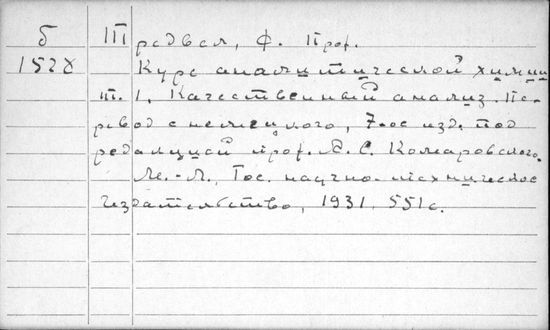 б Тредвел, Ф. Проф.
1528 Курс аналитической химии
т. 1. Качественный анализ. Пе-
ревод с немецкого, 7-ое изд. под
редакцией проф. А. С. Комаровского.
М.-Л., Гос. научно-техническое
издательство, 1931. 551 с.